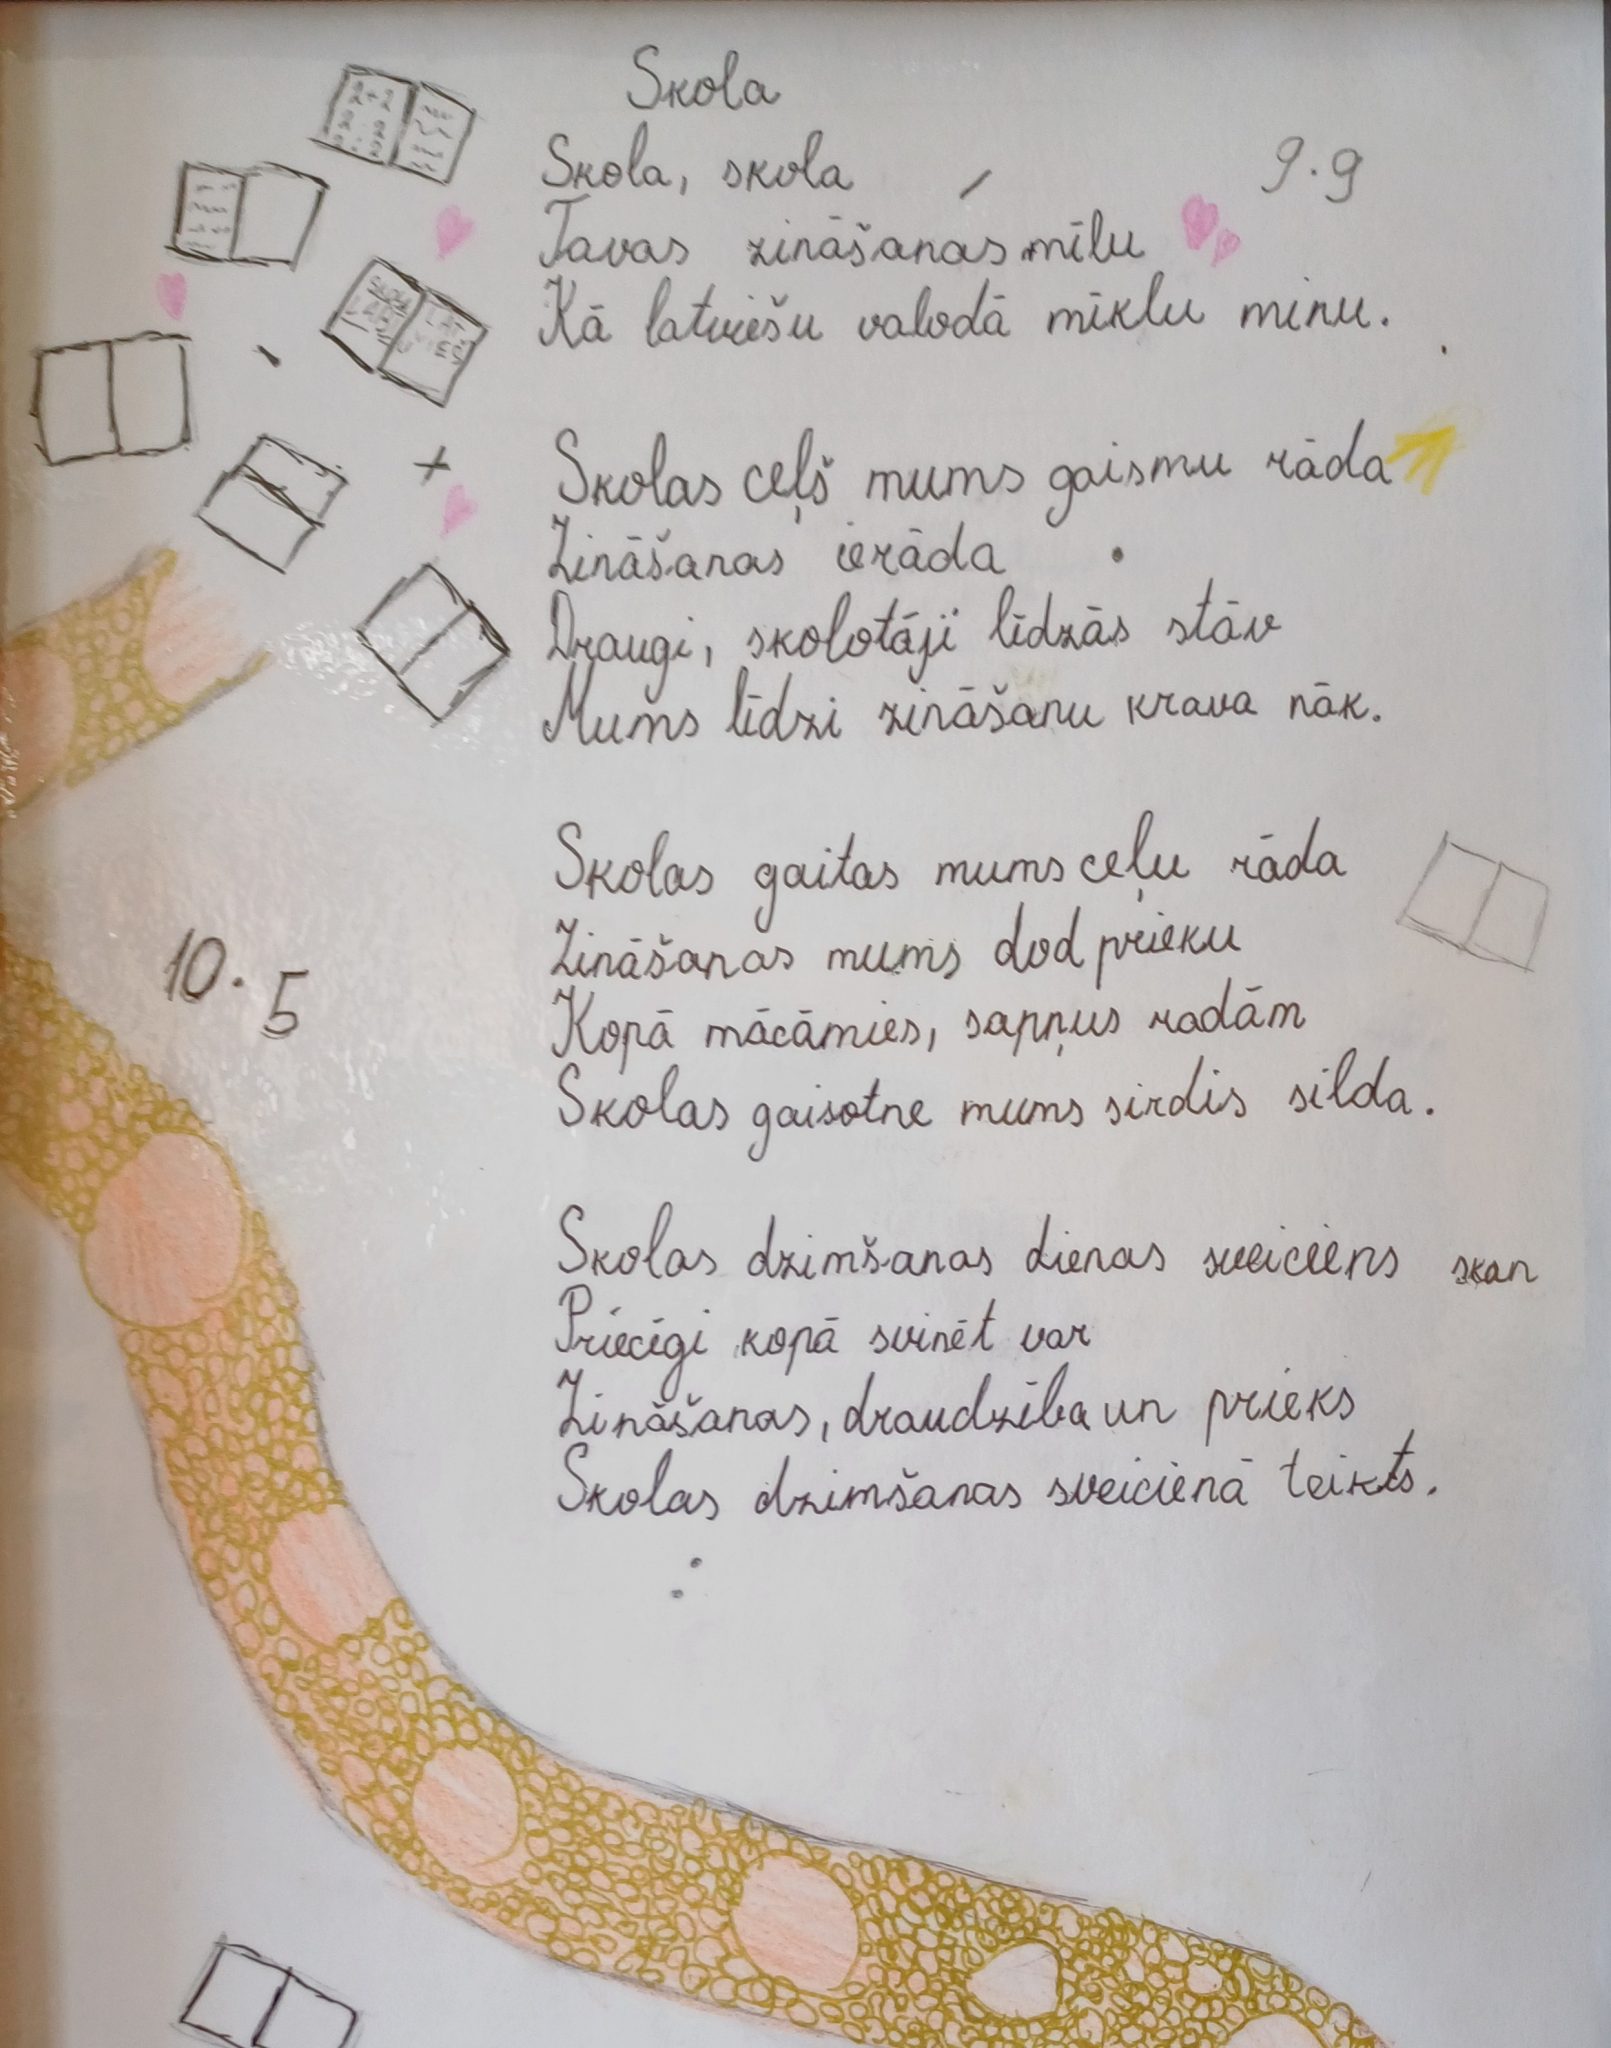 Skola
Skola, skola
9.9
Tavas zināšanas mīlu
Kā latviešu valodā mīklu minu.
Skolas ceļš mums gaismu rāda
Zināšanas ierāda
Draugi, skolotāji līdzās stāv
Mums līdzi zināšanu krava nāk.
Skolas gaitas mums ceļu rāda
Zināšanas mums dod prieku
Kopā mācāmies, sapņus radām
Skolas gaisotne mums sirdis silda.
10.5
Skolas dzimšanas dienas sveiciens skan
Priecīgi kopā svinēt var
Zināšanas, draudzība un prieks
Skolas dzimšanas sveicienā teikts.
2+2